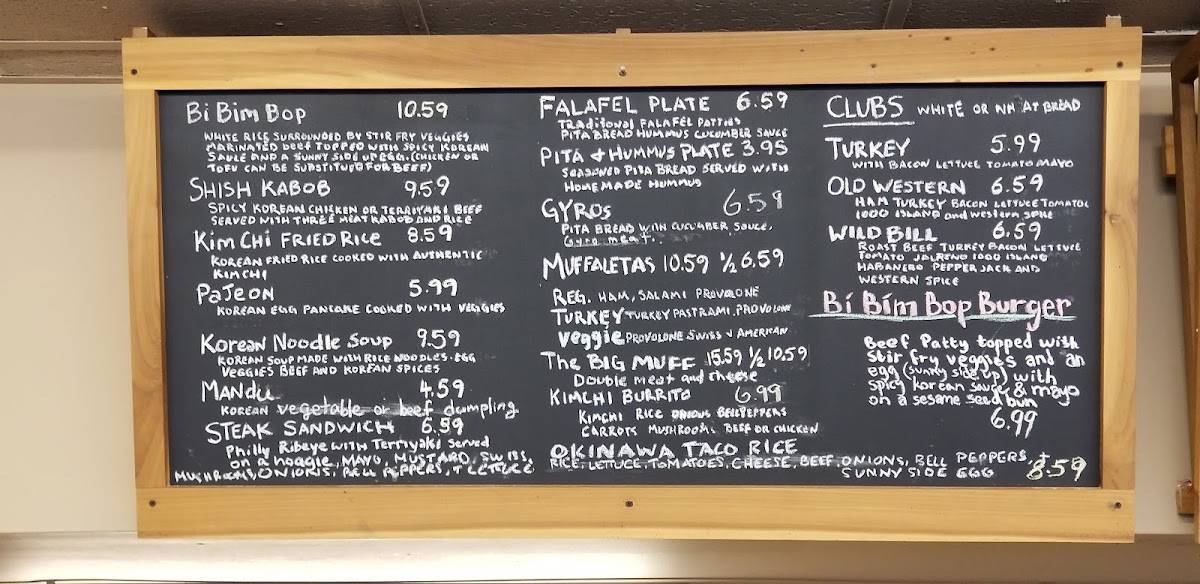 Bi Bim Bop 10.59
WHITE RICE SURROUNDED BY STIR FRY VEGGIES
MARINATED BEEF TOPPED WITH SPICY KOREAN
SAUCE AND A SUNNY SIDE UP EGG. (CHICKEN OR
TOFU CAN BE SUBSTITUED FOR BEEF)
SHISH KABOB 9.59
SPICY KOREAN CHICKEN OR TERRIYAKI BEEF
SERVED WITH THREE MEAT KABOB AND RICE
Kim CHi FRIED RICE 8.59
KOREAN FRIED RICE COOKED WITH AUTHENTIC
KIMCHI
PaJEON 5.99
KOREAN EGG PANCAKE COOKED WITH VEGGIES
Korean Noodle Soup 9.59
KOREAN SOUP MADE WITH RICE NOODLES. EGG
VEGGIES BEEF AND KOREAN SPICES
MANdu 4.59
KOREAN vegetable or beef dumpling
STEAK SANDWICH 6.59
Philly Ribeye with Terriyaki Served
on a hoggie, MAYO, MUSTARD, SWISS,
MUSHROOMS, ONIONS, BELL PEPPERS, + LETTUCE
FALAFEL PLATE 6.59
TRADITIONAL FALAFEL PATTIES
PITA BREAD HUMMUS CUCUMBER SAUCE
PITA + HUMMUS PLATE 3.95
SEASONED PITA BREAD SERVED WITH
HOMEMADE HUMMUS
GYROS 6.59
PITA BREAD WITH CUCUMBER SAUCE,
Gyro meat.
MUFFALETAS 10.59 ½ 6.59
REG. HAM, SALAMI PROVOLONE
TURKEY TURKEY PASTRAMI, PROVOLONE
Veggie PROVOLONE SWISS AMERICAN
The BIG MUFF 15.59 ½ 10.59
Double meat and cheese
KIMCHI BURRITO 6.99
KIMCHI RICE ONIONS BELL PEPPERS
CARROTS MUSHROOMS BEEF OR CHICKEN
OKINAWA TACO RICE
RICE, LETTUCE, TOMATOES, CHEESE, BEEF, ONIONS, BELL PEPPERS, +
SUNNY SIDE EGG 8.59
CLUBS WHITE OR WHEAT BREAD
TURKEY 5.99
WITH BACON LETTUCE TOMATO MAYO
OLD WESTERN 6.59
HAM TURKEY BACON LETTUCE TOMATOE
1000 ISLAND and western SPICE
WILD BILL 6.59
ROAST BEEF TURKEY BACON LETTUCE
TOMATO 1000 ISLAND
HABANERO PEPPER JACK AND
WESTERN SPICE
Bi Bim Bop Burger
Beef Patty topped with
stir fry veggies and an
egg (sunny side up) with
spicy korean sauce & mayo
on a sesame seed bun
6.99